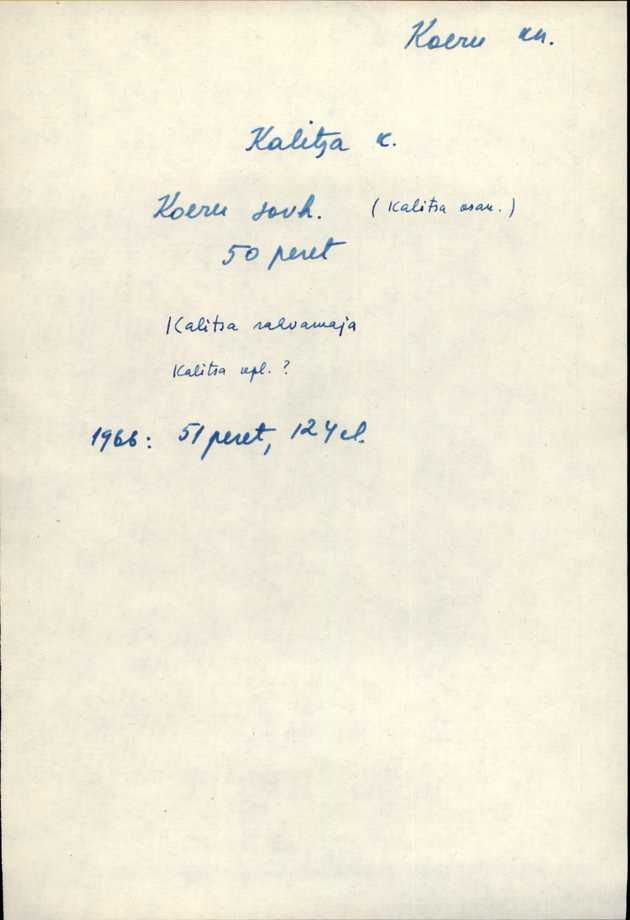 Koeru kn.
Kalitsa k.
Koeru sovh. (Kalitsa osak.)
50 peret
Kalitsa rahvamaja
Kalitsa apt. ?
1966: 51 peret, 124 el.